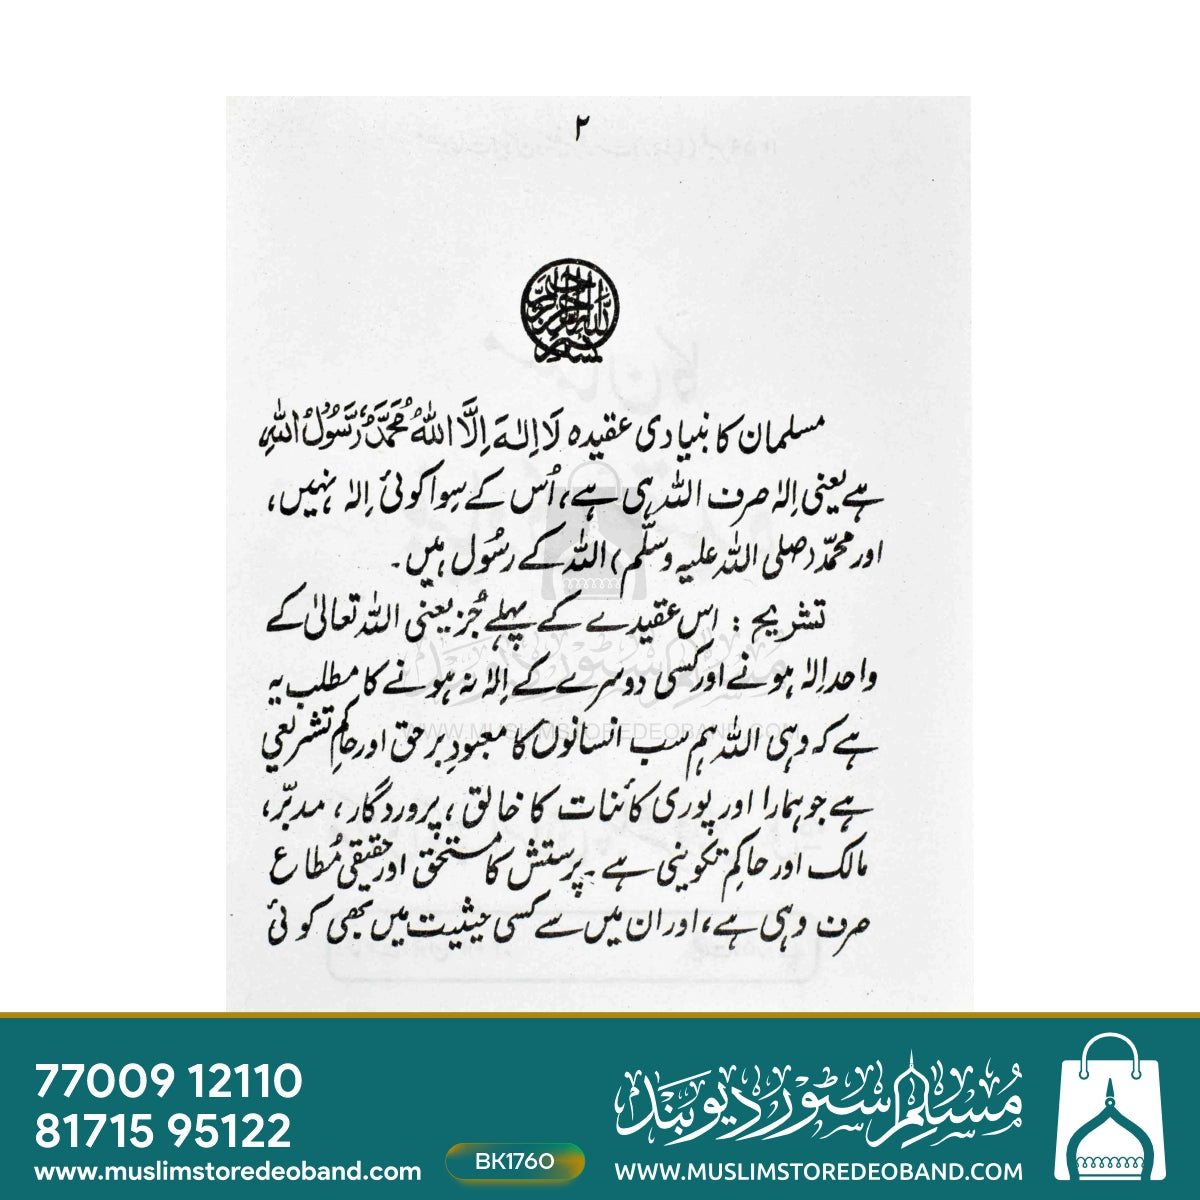 ۲
بسم اللہ الرحمن الرحیم
مسلمان کا بنیادی عقیدہ لَا اِلٰہَ اِلَّا اللّٰہُ مُحَمَّدٌ رَّسُوْلُ اللّٰہِ
ہے یعنی اِلٰہ صرف اللہ ہی ہے، اُس کے سِوا کوئی اِلٰہ نہیں،
اور محمدؐ (صلی اللہ علیہ وسلّم) اللہ کے رسُول ہیں۔
تشریح : اس عقیدے کے پہلے جُز یعنی اللہ تعالیٰ کے
واحد اِلٰہ ہونے اور کسی دوسرے کے اِلٰہ نہ ہونے کا مطلب یہ
ہے کہ وہی اللہ ہم سب انسانوں کا معبودِ برحق اور حاکمِ تشریعی
ہے جو ہمارا اور پوری کائنات کا خالق، پروردگار، مدبّر،
مالک اور حاکمِ تکوینی ہے۔ پرستش کا مستحق اور حقیقی مُطاع
صرف وہی ہے، اور ان میں سے کسی حیثیت میں بھی کوئی
مسلم سٹور دیوبند
WWW.MUSLIMSTOREDEOBAND.COM
77009 12110
81715 95122
www.muslimstoredeoband.com
BK1760
مُسلم سٹور دیوبند
WWW.MUSLIMSTOREDEOBAND.COM